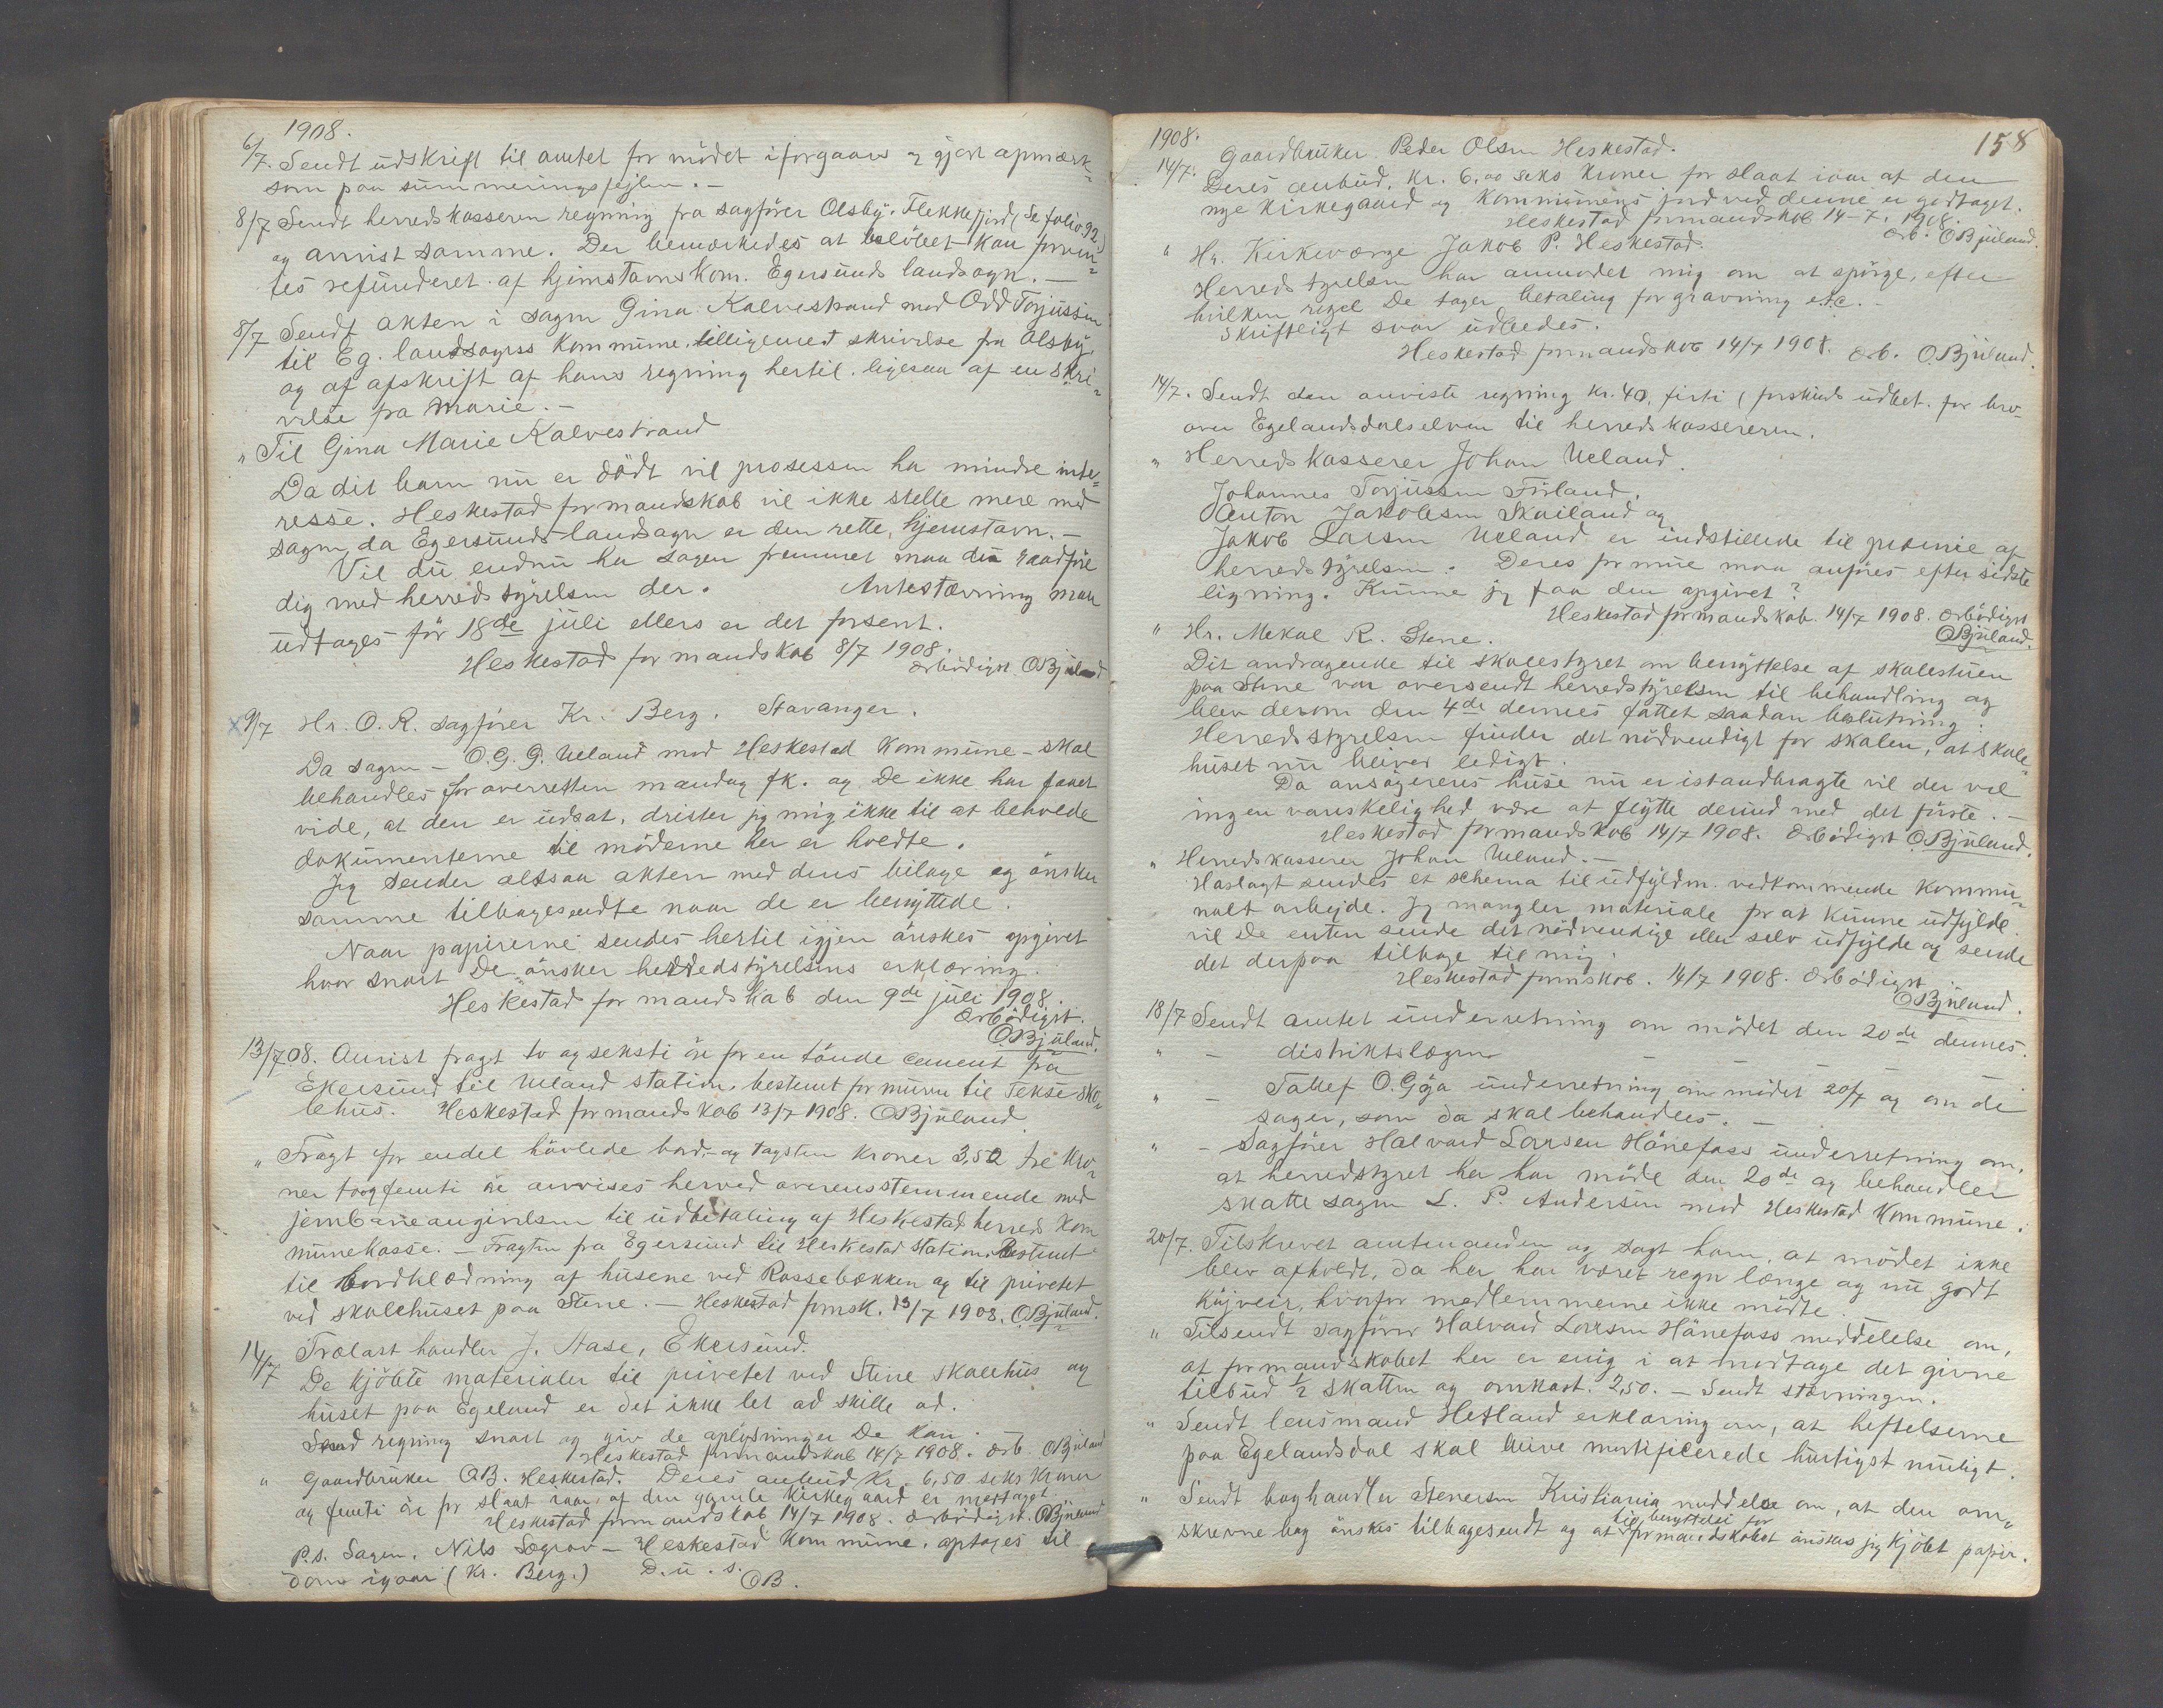 1908.
6/7. Sendt udskrift til amtet for mödet iforgaars og gjort apmærk-
som paa summeringsfejlen. -
8/7 Sendt herredskasseren regning fra sagförer Olsby. Flekkefjord (Se folio 92.)
og anvist samme. Der bemærkedes at belöbet kan forven-
tes refunderet af hjemstavnskom. Egersunds landsogn. -
8/7 Sendt akten i sagen Gina Kalvestrand mod Odd Torjussen
til Eg. landsogns kommune. tilligemed skrivelse fra Olsby,
og af afskrift af hans regning hertil. ligesaa af en skri-
velse fra Marie. -
" Til Gina Marie Kalvestrand
Da dit barn nu er dödt vil prosessen ha mindre inte-
resse. Heskestad formandskab vil ikke stelle mere med
sagen, da Egersunds landsogn er den rette hjemstavn. -
Vil du endnu ha sagen fremmet maa du raadföre
dig med herredstyrelsen der. Antestævning maa
udtages för 18de juli ellers er det forsent.
Heskestad formandskab 8/7 1908.
ærbödigst OBjuland
x 9/7 Hr. O. R. sagförer Kr. Berg. Stavanger.
Da sagen - O. G. G. Ueland mod Heskestad kommune - skal
behandles for overretten mandag fk. og De ikke har faaet
vide, at den er udsat, drister jeg mig ikke til at beholde
dokumenterne til möderne her er holdte.
Jeg sender altsaa akten med dens bilage og önsker
samme tilbagesendte naar de er benyttede.
Naar papirerne sendes hertil igjen önskes opgivet
hvor snart De önsker herredstyrelsens erklæring.
Heskestad formandskab den 9de juli 1908.
ærbödigst.
OBjuland.
13/7 08. Anvist fragt to og seksti öre for en tönde cement fra
Ekersund til Ueland station, bestemt for muren til Tekse sko-
lehus. Heskestad formandskab 13/7 1908. OBjuland
" Fragt for endel hövlede bord og tagsten kroner 3,52 tre kro-
ner toogfemti öre anvises herved overensstemmende med
jernbaneangivelsen til udbetaling af Heskestad herreds kom
munekasse. - Fragten fra Egersund til Heskestad station. Bestemt
til bordklædning af husene ved Rossebækken og til privetet
ved skolehuset paa Stene. - Heskestad formsk. 13/7 1908. OBjuland.
14/7 Trælast handler J. Aase, Ekersund.
De kjöbte materialer til privetet ved Stene skolehus og
huset paa Egeland er det ikke let ad skille ad.
Send regning snart og giv de oplysninger De kan. -
Heskestad formandskab 14/7 1908. ærb OBjuland
" Gaardbruker O.B. Heskestad. Deres anbud kr. 6,50 seks kroner
og femti öre for slaat iaar, af den gamle kirkegaard er mottaget.
Heskestad formandskab 14/7 1908. ærbödigst. OBjuland
P.s. Sagen. Nils Lægrov - Heskestad kommune. optages til
dom igaar (Kr. Berg.) D.u.s.
OB.
158
1908.
Gaardbruker Peder Olsen Heskestad.
14/7. Deres anbud, kr. 6,00 seks kroner for slaat iaar af den
nye kirkegaard og kommunens jord ved denne er godtaget.
Heskestad formandskab 14-7. 1908.
ærb. OBjuland.
" Hr. Kirkeværge Jakob P. Heskestad.
Herredstyrelsen har anmodet mig om at spörge, efter
hvilken regel De tager betaling for gravning etc. -
Skriftligt svar udbedes.
Heskestad formandskab 14/7 1908. ærb. OBjuland.
14/7. Sendt den anviste regning kr. 40, firti (forskuds udbet. for bro-
over Egelandsdalselven til herredskassereren.
" Herredskasserer Johan Ueland.
Johannes Torjussen Fuland.
Anton Jakobsen Skailand og
Jakob Larsen Ueland er indstillede til præmie af
herredstyrelsen. Deres formue maa anföres efter sidste
ligning. Kunne jeg faa den opgivet?
Heskestad formandskab. 14/7 1908. ærbödigst
OBjuland.
" Hr. Mekal R. Stene.
Dit andragende til skolestyret om benyttelse af skolestuen
paa Stene var oversendt herredstyrelsen til behandling og
blev derom den 4de dennes fattet saadan beslutning:
Herredsstyrelsen finder det nödvendigt for skolen, at skole-
huset nu bliver ledigt.
Da ansögerens huse nu er istandbragte vil der vel
ingen vanskelighed være at flytte derind med det förste. -
Heskestad formandskab 14/7 1908. ærbödigst OBjuland.
" Herredskasserer Johan Ueland. -
Haslagt sendes et schema til udfyldn. vedkommende kommu-
nalt arbejde. Jeg mangler materiale for at kunne udfylde.
vil De enten sende det nödvendige eller selv udfylde og sende
det derpaa tilbage til mig.
Heskestad formskab. 14/7 1908. ærbödigst
OBjuland.
18/7 Sendt amtet underretning om mödet den 20de dennes.
" - distriktslægen - - -
" - Tallef O. Gya underretning om mödet 20/7 og om de
sager, som da skal behandles. -
" - Sagförer Halvard Larsen Hönefoss underretning om,
at herredstyret her har möde den 20de og behandler
skatte sagen L. P. Andersen mod Heskestad kommune.
20/7. Tilskrevet amtmanden og sagt ham, at mödet ikke
blev afholdt, da her har været regn længe og nu godt
höjveir, hvorfor medlemmerne ikke mödte.
" Tilsendt sagförer Halvard Larsen Hönefoss meddelelse om,
at formandskabet her er enig i at modtage det givne
tilbud 1/2 skatten og omkost. 2,50. - Sendt stævningen.
" Sendt lensmand Hetland erklæring om, at heftelserne
paa Egelandsdal skal blive mortificerede hurtigst muligt.
" Sendt boghandler Stenersen Kristiania meddelse om, at den om-
skrevne bog önskes tilbagesendt og at til benyttelse for formandskabet önskes jeg kjöbt papir.